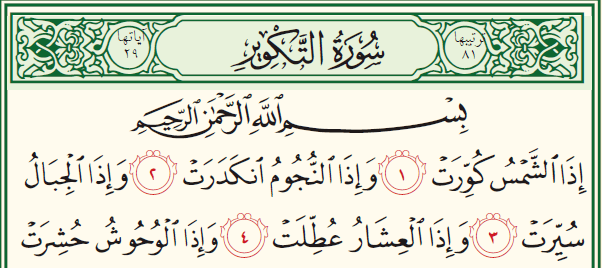 ترتيبها ٨١ سُورَةُ التَّكْوِيرِ آياتها ٢٩
بِسْمِ اللَّهِ الرَّحْمَٰنِ الرَّحِيمِ
إِذَا الشَّمْسُ كُوِّرَتْ ١ وَإِذَا النُّجُومُ انكَدَرَتْ ٢ وَإِذَا الْجِبَالُ
سُيِّرَتْ ٣ وَإِذَا الْعِشَارُ عُطِّلَتْ ٤ وَإِذَا الْوُحُوشُ حُشِرَتْ